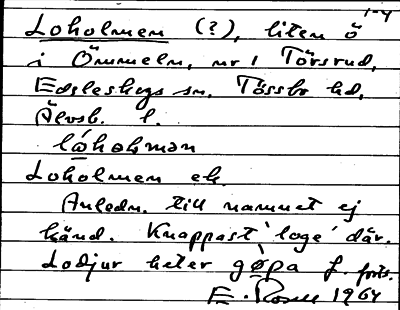 1-4
Loholmen (?), liten ö
i Ömmeln, nr 1 Törsrud,
Edsleskogs sn. Tössbo hd,
Älvsb. l.
lóholmən
Loholmen ek.
Anledn. till namnet ej
känd. Knappast 'loge' där.
Lodjur heter gøpa f. forts.
E. 1964